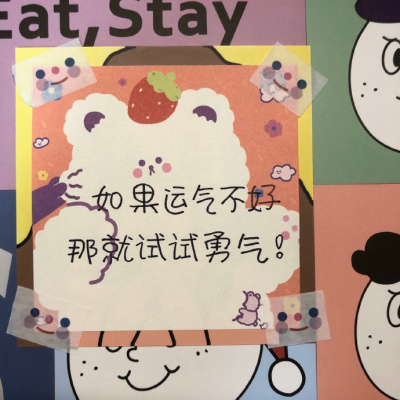 Eat, Stay
如果运气不好
那就试试勇气!